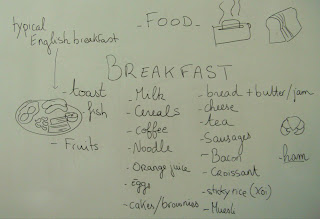 - FOOD -
typical
English breakfast
BREAKFAST
- toast
- fish
- Fruits
- Milk
- Cereals
- Coffee
- Noodle
- Orange juice
- Eggs
- cakes/brownies
- bread + butter/jam
- cheese
- tea
- Sausages
- Bacon
- Croissant
- sticky rice (Xôi)
- Muesli
- ham